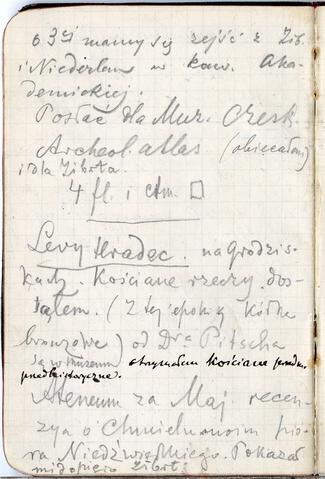 o 3ej mamy się zejść z Zib.
i Niederlem w kaw. Aka-
demickiej.
Posłać dla Muz. Czesk.
Archeol. atlas (obiecałem)
i dla Zibrta.
4 fl. i ctm. □
Levy Hradec. na grodzis-
kach. Kościane rzeczy dos-
tałem. (Z tej epoki, które
bronzowe) od Dra Pitscha
są w muzeum) otrzymałem kościane
przedhistoryczne.
Ateneum za Maj recen-
zya o Chmielnoim pió-
ra Niedźwiedzkiego. Pokazał
mi dopiero Zibrt.